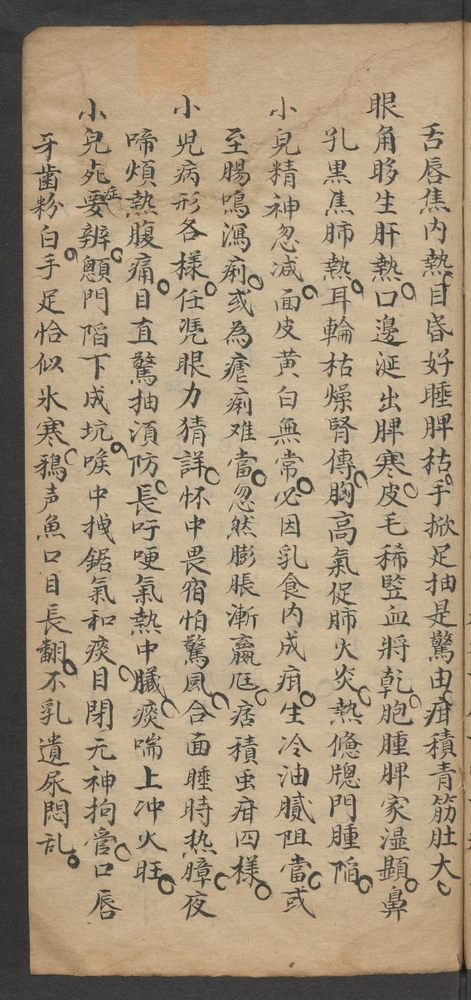 舌唇焦內熱。目昏好睡脾枯。手掀足抽是驚由。疳積青筋肚大。
眼角眵生肝熱。口邊涎出脾寒。皮毛稀竪血將乾。胞腫脾家濕顯。鼻
孔黑焦肺熱。耳輪枯燥腎傳。胸高氣促肺火炎。熱極牕門腫陷。
小兒精神忽減。面皮黃白無常。必因乳食內成疳。生冷油膩阻當。或
至腸鳴瀉痢。或為瘧痢难當。忽然膨脹漸羸尫。痞積虫疳四樣。
小児病形各樣。任凭眼力猜詳。怀中畏宿怕驚風。合面睡時热障。夜
啼煩熱腹痛。目直驚抽湏防。長吁哽氣熱中臟。痰喘上冲火旺。
小兒死症要辨。顖門陷下成坑。喉中拽鋸氣和痰。目閉元神拘管。口唇
牙齒粉白。手足恰似氷寒。鴉声魚口目長翻。不乳遺尿悶乱。